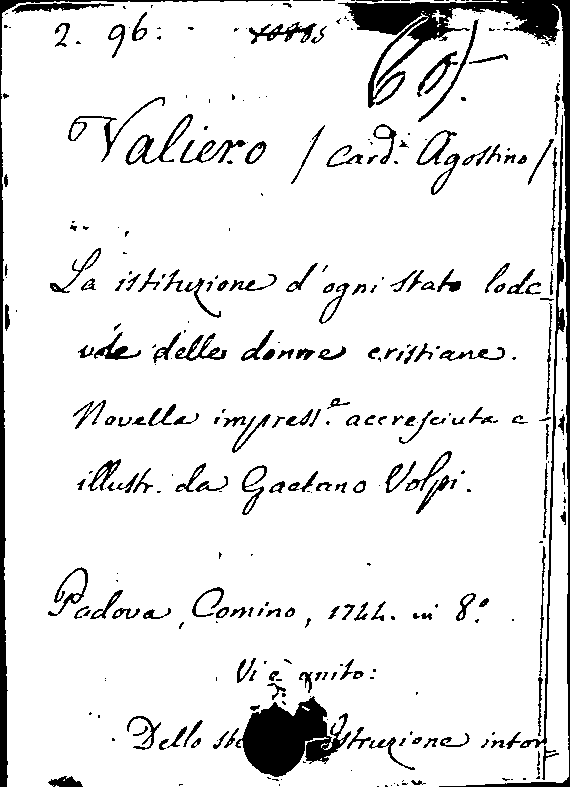 2. 96.
60).
Valiero / Card. Agostino /
La istituzione d'ogni stato lode
vole delle donne cristiane.
Novella impress.e accresciuta e
illustr. da Gaetano Volpi.
Padova, Comino, 1744. in 8.o
Vi è unito:
Dello Istruzione intor